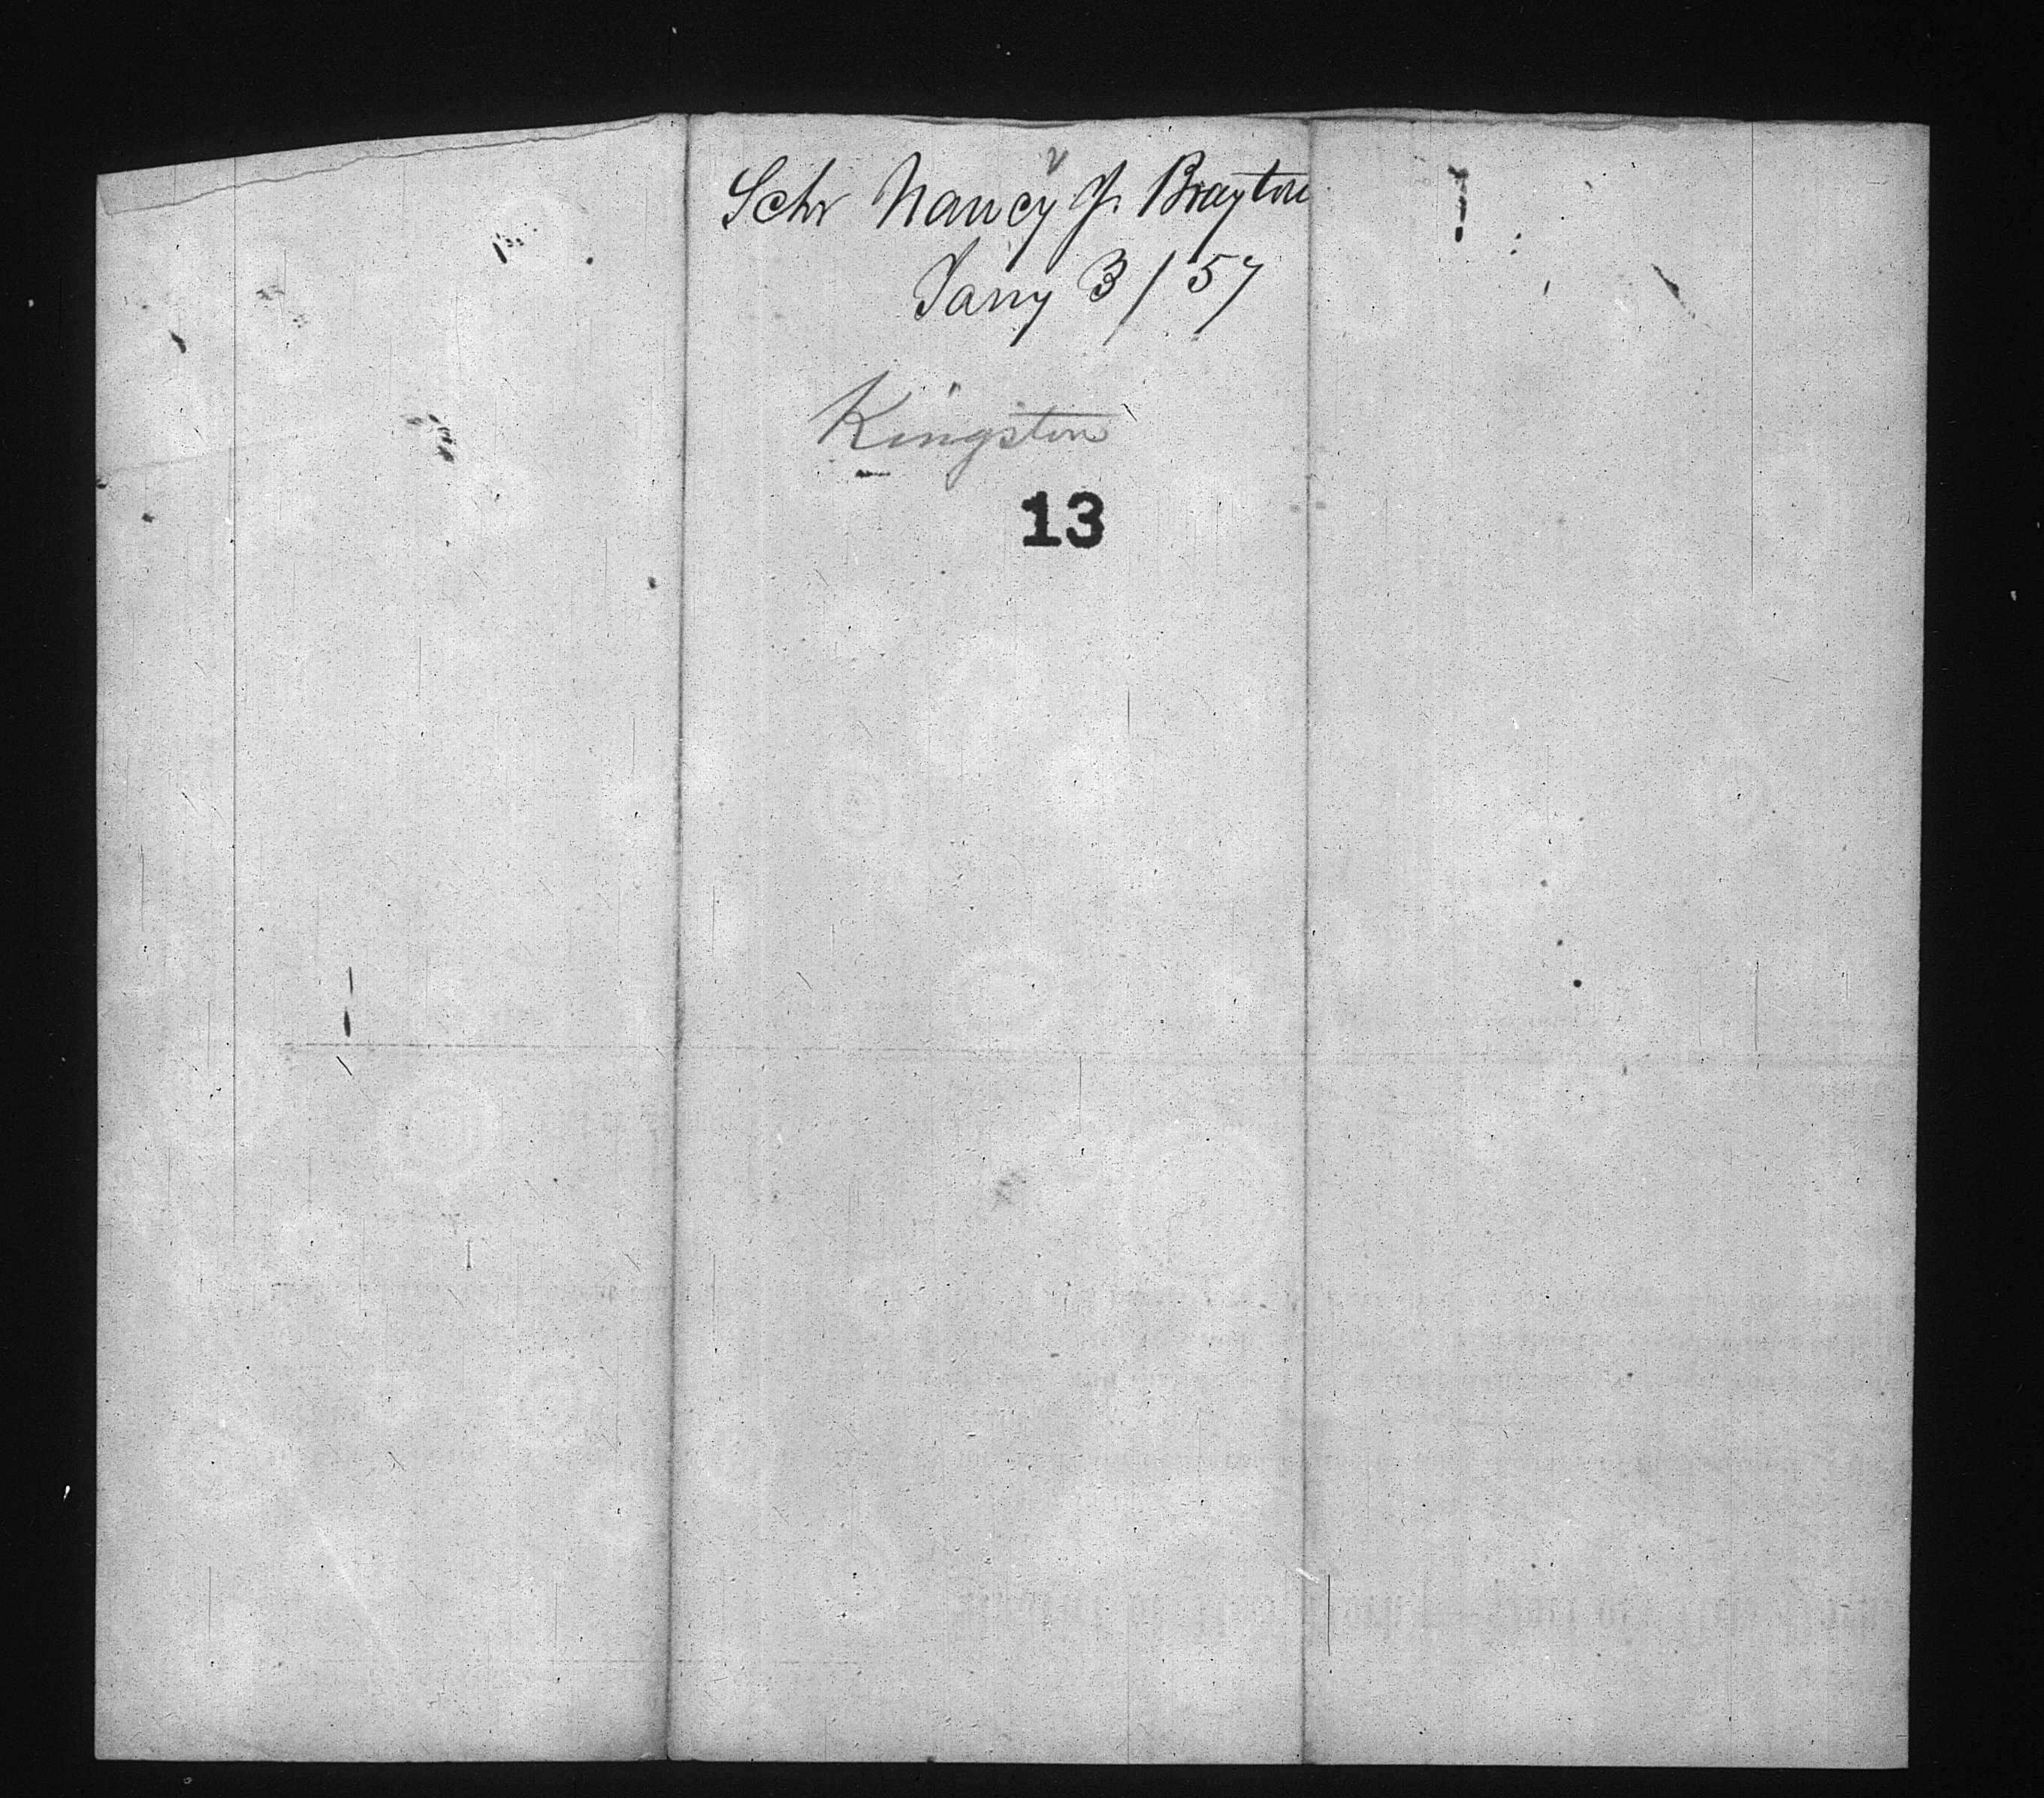 Schr Nancy J. Brayton
Jany 3/57
Kingston
13